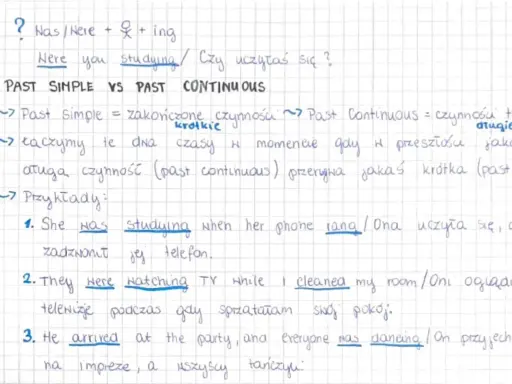 ? Was/Were + + ing
Were you studying / Czy uczyłaś się?
PAST SIMPLE VS PAST CONTINUOUS
~> Past Simple = zakończone czynności ~> Past Continuous = czynności
krótkie długie
~> Łączymy te dwa czasy w momencie gdy w przeszłości
długa czynność (past continuous) przerywa jakaś krótka (past
~> Przykłady:
1. She was studying when her phone rang / Ona uczyła się,
zadzwonił jej telefon.
2. They were watching TV while I cleaned my room / Oni
telewizje podczas gdy sprzątałam swój pokój.
3. He arrived at the party, and everyone was dancing / On
na impreze, a wszyscy tańczyli